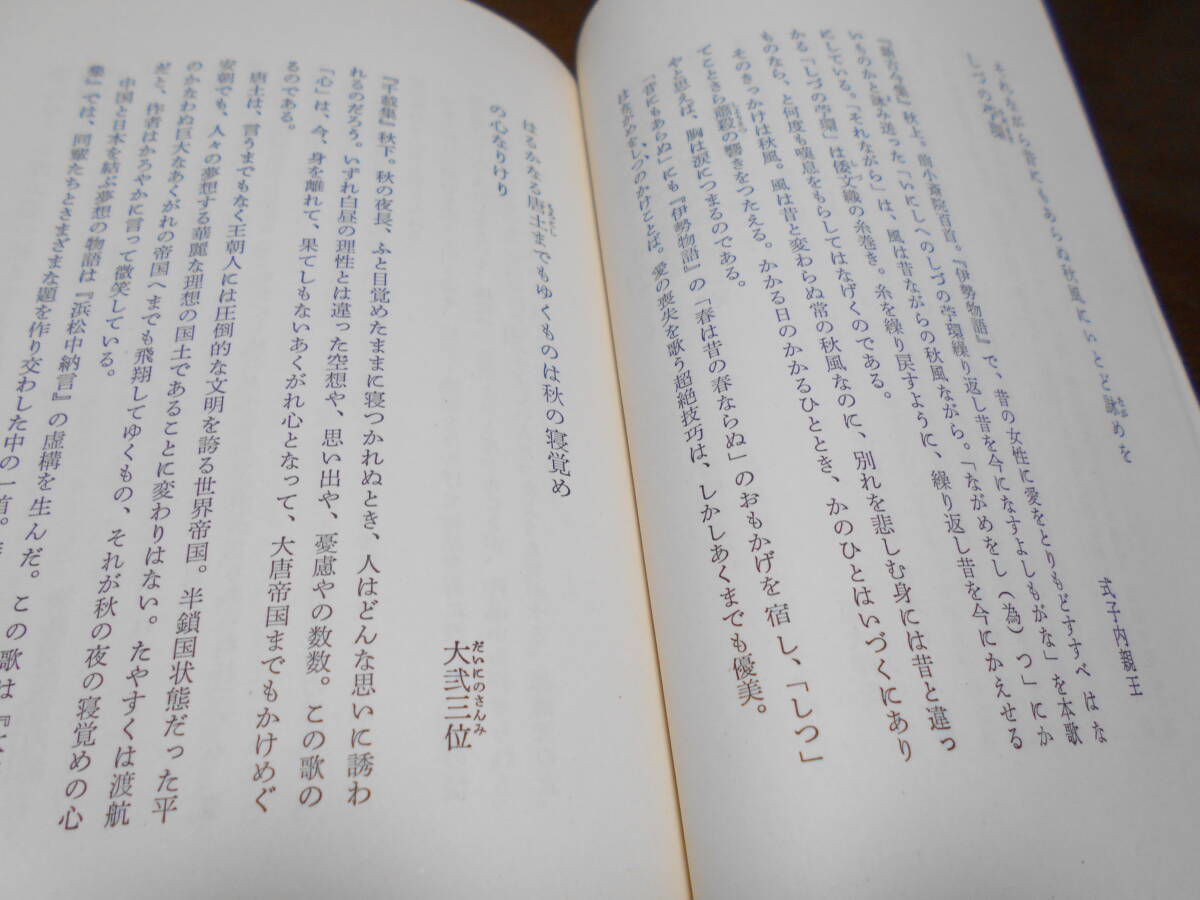 それながら昔にもあらぬ秋風にいとど詠めを
しづの苧環
式子内親王
『新古今集』秋上。前小斎院百首。『伊勢物語』で、昔の女性に愛をとりもどすすべはな
いものかと詠み送った「いにしへのしづの苧環繰り返し昔を今になすよしもがな」を本歌
にしている。「それながら」は、風は昔ながらの秋風ながら。「ながめをし（為）つ」にか
かる「しづの苧環」は倭文織の糸巻き。糸を繰り戻すように、繰り返し昔を今にかえせる
ものなら、と何度も嘆息をもらしてはなげくのである。
そのきっかけは秋風。風は昔と変わらぬ常の秋風なのに、別れを悲しむ身には昔と違っ
てことさら蕭殺の響きをつたえる。かかる日のかかるひととき、かのひとはいづくにあり
やと思えば、胸は涙につまるのである。
「昔にもあらぬ」にも『伊勢物語』の「春は昔の春ならぬ」のおもかげを宿し、「しつ」
はながめをしつのかけことば。愛の喪失を歌う超絶技巧は、しかしあくまでも優美。
はるかなる唐土までもゆくものは秋の寝覚め
の心なりけり
大弐三位
『千載集』秋下。秋の夜長、ふと目覚めたままに寝つかれぬとき、人はどんな思いに誘わ
れるのだろう。いずれ白昼の理性とは違った空想や、思い出や、憂慮やの数数。この歌の
「心」は、今、身を離れて、果てしもないあくがれ心となって、大唐帝国までもかけめぐ
るのである。
唐土は、言うまでもなく王朝人には圧倒的な文明を誇る世界帝国。半鎖国状態だった平
安朝でも、人々の夢想する華麗な理想の国土であることに変わりはない。たやすくは渡航
のかなわぬ巨大なあくがれの帝国へまでも飛翔してゆくもの、それが秋の夜の寝覚めの心
だと、作者はかろやかに言って微笑している。
中国と日本を結ぶ夢想の物語は『浜松中納言』の虚構を生んだ。この歌は『
集』では、同輩たちとさまざまな題を作り交わした中の一首。